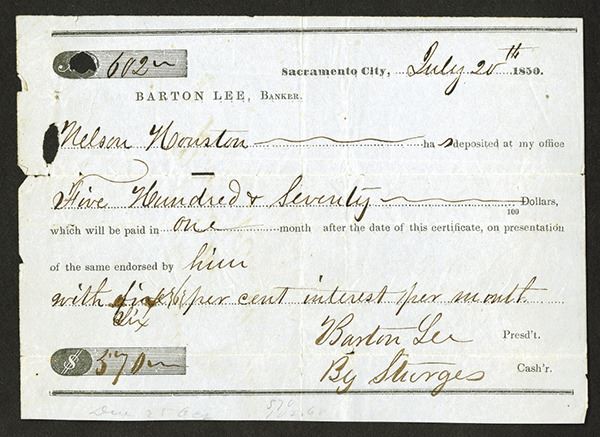 602
Sacramento City, July 20th 1850.
BARTON LEE, BANKER.
Nelson Houston has deposited at my office
Five Hundred & Seventy /100 Dollars,
which will be paid in one month after the date of this certificate, on presentation
of the same endorsed by him
with six (6) per cent interest per month
Six
Barton Lee Presd't.
$ 570
By Sturges Cash'r.